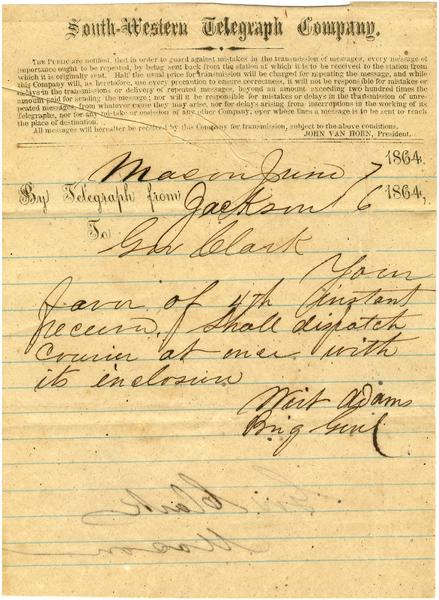 South-Western Telegraph Company.
The Public are notified, that in order to guard against mistakes in the transmission of messages, every message of
importance ought to be repeated, by being sent back from the station at which it is to be received to the station from
which it is originally sent. Half the usual price for transmission will be charged for repeating the message, and while
this Company will, as heretofore, use every precaution to ensure correctness, it will not be responsible for mistakes or
delays in the transmission or delivery of repeated messages, beyond an amount exceeding two hundred times the
amount paid for sending the message; nor will it be responsible for mistakes or delays in the transmission of unre-
peated messages, from whatever cause they may arise, nor for delays arising from interruptions in the working of its
Telegraphs, nor for any mistake or omission of any other Company, over whose lines a message is to be sent to reach
the place of destination.
All messages will hereafter be received by this Company for transmission, subject to the above conditions.
JOHN VAN HORN, President.
Macon June 7 1864.
By Telegraph from Jackson 6 1864,
To Gov Clark
Your
favor of 4th instant
receivd. Shall dispatch
courier at once with
its enclosure
Wirt Adams
Brig Genl
Gov. Clark
Macon